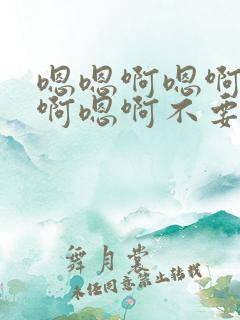 嗯嗯啊嗯啊
啊嗯啊不要
舞月裳
未经同意禁止转载